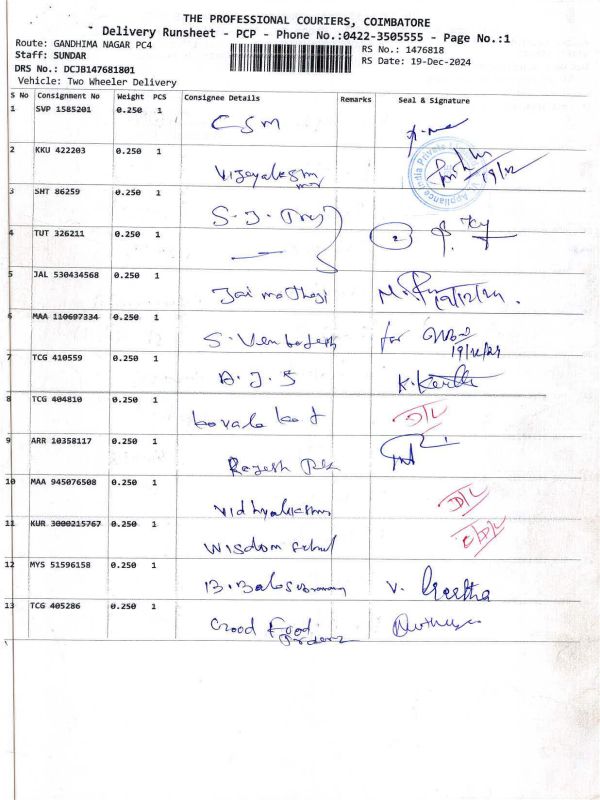 THE PROFESSIONAL COURIERS, COIMBATORE
Delivery Runsheet - PCP - Phone No.:0422-3505555 - Page No.:1
Route: GANDHIMA NAGAR PC4
RS No.: 1476818
Staff: SUNDAR
RS Date: 19-Dec-2024
DRS No.: DCJB147681801
Vehicle: Two Wheeler Delivery
S No Consignment No Weight PCS Consignee Details Remarks Seal & Signature
1 SVP 1585201 0.250 1 CSM
2 KKU 422203 0.250 1 Vijayalaksmi 19/12
3 SHT 86259 0.250 1 S.J.
4 TUT 326211 0.250 1 2
5 JAL 530434568 0.250 1 Jai mathaji 19/12/24.
6 MAA 110697334 0.250 1 S. Venkatesh for 19/12/24
7 TCG 410559 0.250 1 A.J.S K.
8 TCG 404810 0.250 1 kovala D/L
9 ARR 10358117 0.250 1 Rajesh
10 MAA 945076508 0.250 1 Vidhyalakshmi D/L
11 KUR 3000215767 0.250 1 Wisdom school
12 MYS 51596158 0.250 1 B. V. Geetha
13 TCG 405286 0.250 1 Good Food